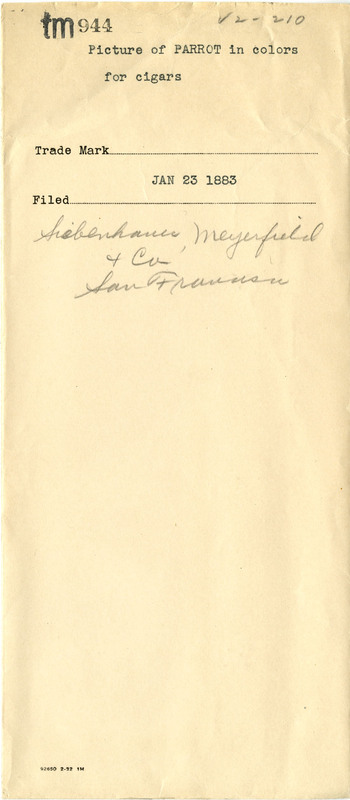 tm 944
V2-210
Picture of PARROT in colors
for cigars
Trade Mark
JAN 23 1883
Filed
Siebenhauer, Meyerfield
& Co
San Francisco
92650 2-32 1M